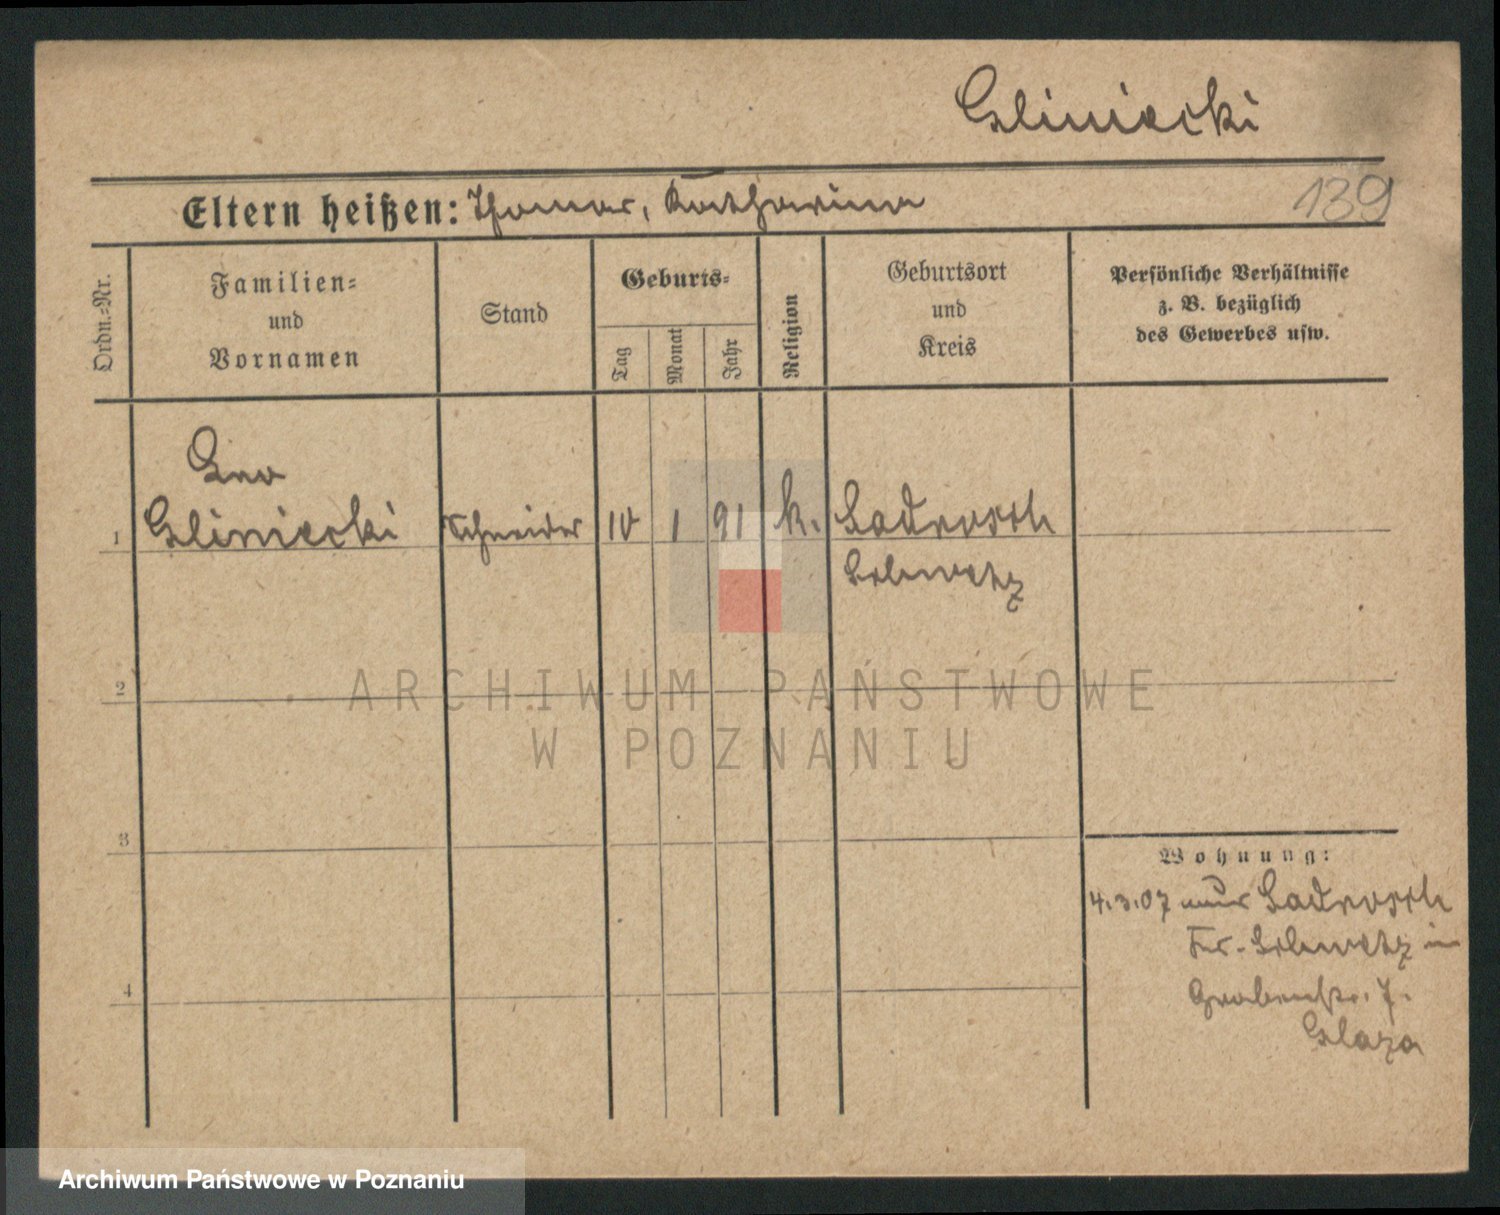 Gliniecki
139
Eltern heißen: Thomas, Katharina
Ordn.-Nr.
Familien-
und
Vornamen
Stand
Geburts-
Tag
Monat
Jahr
Religion
Geburtsort
und
Kreis
Persönliche Verhältnisse
z. B. bezüglich
des Gewerbes usw.
Leo
1 Gliniecki Schneider 10 1 91 k.
2
ARCHIWUM PAŃSTWOWE
W POZNANIU
3
Wohnung:
4.3.07
4
Grabenstr. 7.
Archiwum Państwowe w Poznaniu